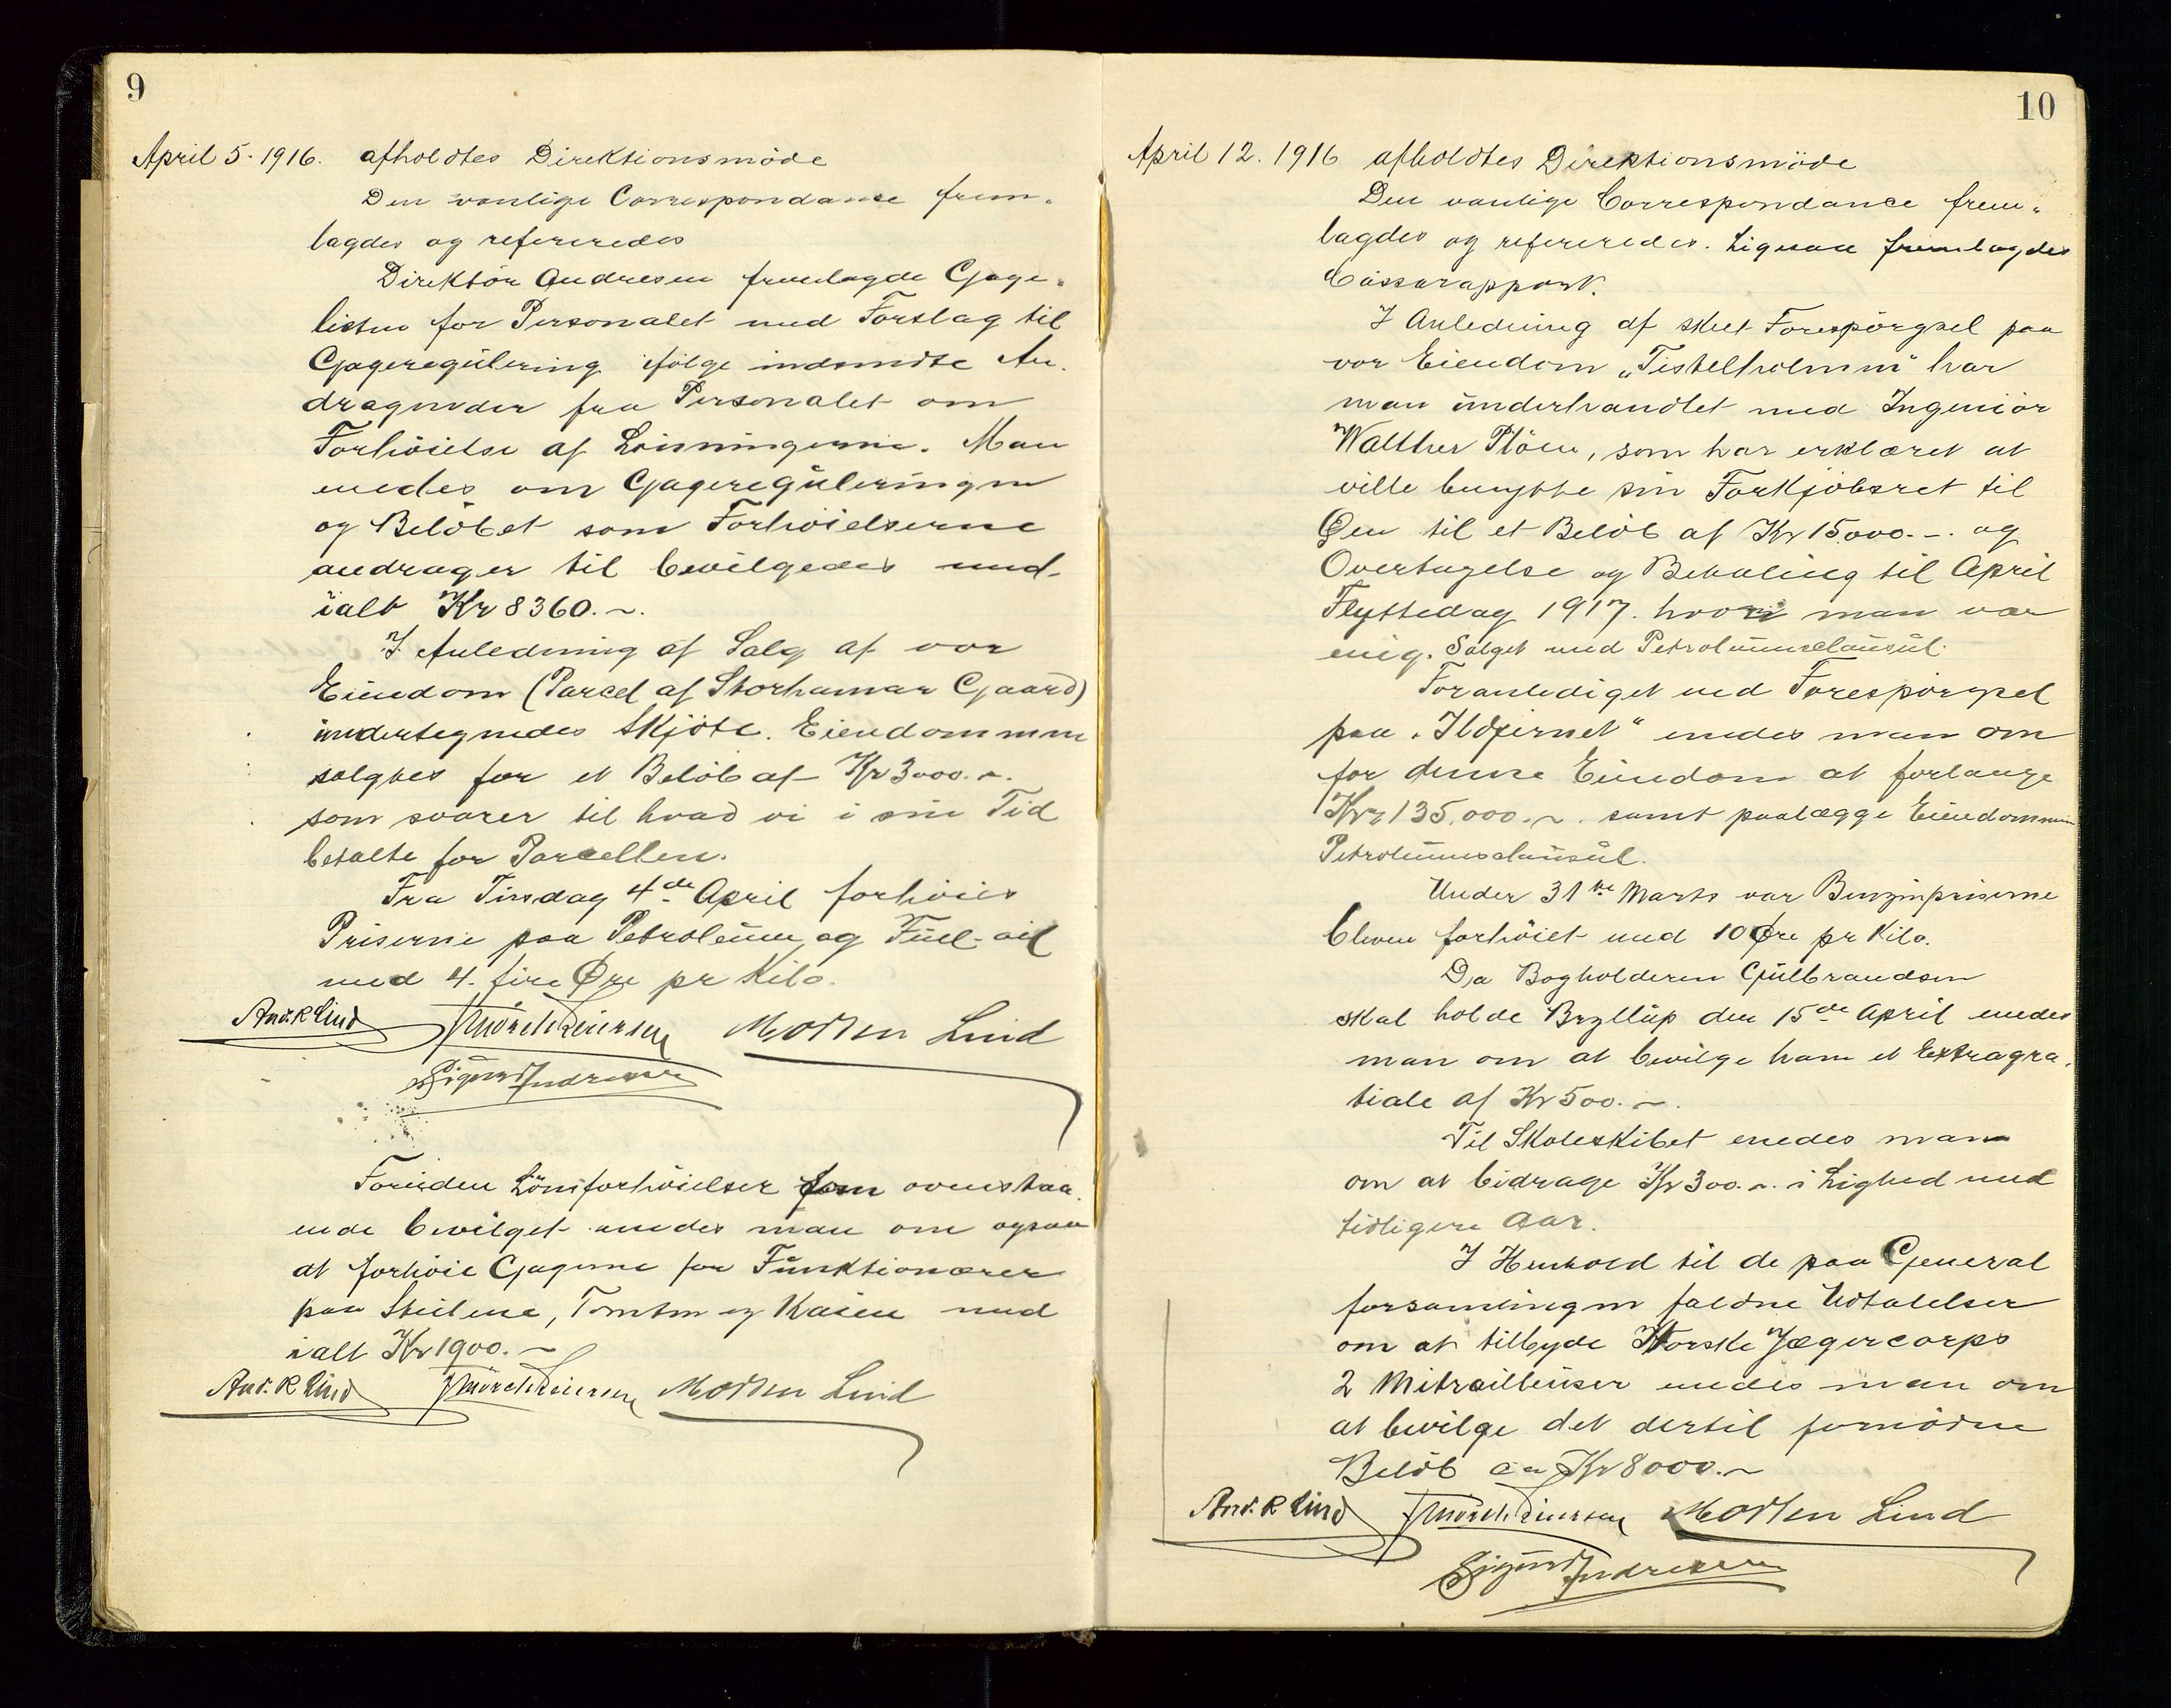 9
April 5. 1916. afholdtes Direktionsmöde
Den vanlige Correspondanse frem-
lagdes og refereredes
Direktör Andresen fremlagde Gage-
listen for Personalet med Forslag til
Gageregulering ifölge indsendte An-
dragender fra Personalet om
Forhöielse af Lönningerne. Man
enedes om Gagereguleringen
og Belöbet som Forhöielserne
andrager til bevilgedes med
ialt Kr 8360.-.
I Anledning af Salg af vor
Eiendom (Parcel af Storhamar Gaard)
undertegnedes Skjöte. Eiendommen
solgtes for et Belöb af Kr 3000.-.
som svarer til hvad vi i sin Tid
betalte for Parcellen.
Fra Tirsdag 4de April forhöies
Priserne paa Petroleum og Fuel-oil
med 4. fire Øre pr Kilo.
And. R Lind Mörch Reiersen Morten Lind
Sigurd Andresen
Foruden Lönsforhöielser som ovenstaa-
ende bevilget enedes man om ogsaa
at forhöie Gagerne for Funktionærer
paa Steilene, Tomten og Kaien med
ialt Kr 1900.-
And. R Lind Mörch Reiersen Morten Lind
10
April 12. 1916 afholdtes Direktionsmöde
Den vanlige Correspondance frem-
lagdes og refereredes. Ligesaa fremlagdes
Cassarapport.
I Anledning af skeet Forespörgsel paa
vor Eiendom „Tistelholmen" har
man underhandlet med Ingeniör
Walther Plöen, som har erklæret at
ville benytte sin Forkjöbsret til
Øen til et Belöb af Kr 15.000.-. og
Overtagelse og Betaling til April
Flyttedag 1917. hvori man var
enig. Salget med Petroleumsclausul.
Foranlediget ved Forespörgsel
paa „Ildjernet" enedes man om
for denne Eiendom at forlange
Kr 135.000.-. samt paalægge Eiendommen
Petroleumsclausul.
Under 31te Marts var Benzinpriserne
bleven forhöiet med 10 Øre pr Kilo.
Da Bogholderen Gulbrandsen
skal holde Bryllup den 15de April enedes
man om at bevilge ham et Extragra-
tiale af Kr 500.-.
Til Skoleskibet enedes man
om at bidrage Kr 300.-. i Lighed med
tidligere Aar.
I Henhold til de paa General
forsamlingen faldne Udtalelser
om at tilbyde Norske Jægercorps
2 Mitrailleuser enedes man om
at bevilge det dertil fornödne
Belöb ca Kr 8000.-
And. R Lind Mörch Reiersen Morten Lind
Sigurd Andresen